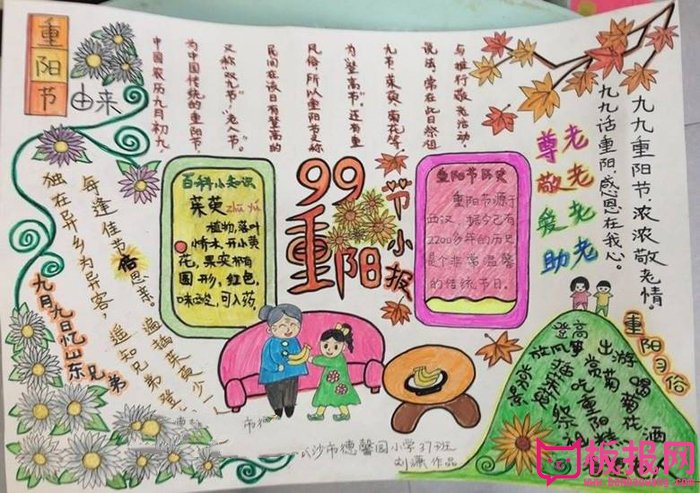 重阳节
由来
中国农历九月初九
为中国传统的重阳节,
又称"双九节""老人节"。
民间在该日有登高的
风俗,所以重阳节又称
为"登高节"。还有重
九节、茱萸、菊花等
说法,常在此日祭祖
与推行敬老活动。
百科小知识
茱萸 zhū yú
植物,落叶
乔木,开小黄
花,果实椭
圆形,红色,
味酸,可入药
99
重阳
节小报
重阳节历史
重阳节源于
西汉,据今已有
2200多年的历史
是个非常温馨
的传统节日。
尊老
敬老
爱老
助老
九九话重阳,感恩在我心。
九九重阳节浓浓敬老情。
重阳习俗
登高
出游
赏菊
喝菊花酒
吃重阳
放风筝
插茱萸
九月九日忆山东兄弟
独在异乡为异客,
每逢佳节倍思亲。
遥知兄弟登
遍插茱萸少一
沙市德馨园小学37班
刘潇 作品
板报网